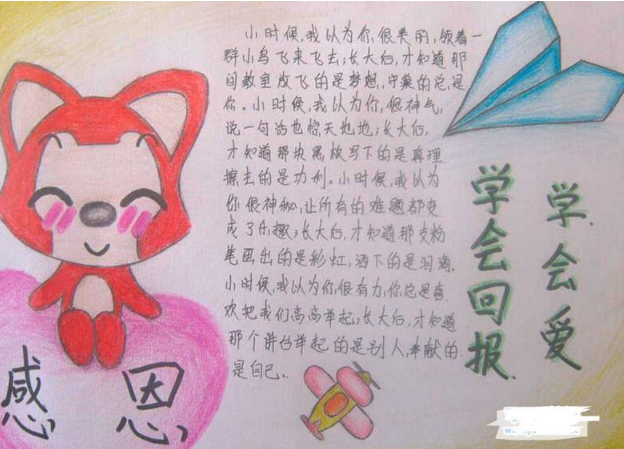 小时候,我以为你,很美丽,领着一
群小鸟飞来飞去;长大后,才知道那
间教室放飞的是梦想,守巢的总,是
你。小时候,我以为你,很神气,
说一句话也惊天地地;长大后,
才知道那块黑板写下的是真理
擦去的是功利。小时候,我以为
你很神秘,让所有的难题都变
成了乐趣;长大后,才知道那支粉
笔画出的是彩虹,洒下的是泪滴.
小时候,我以为你很有力,你总是喜
欢把我们高高举起;长大后,才知道
那个讲台举起的是别人,奉献的
是自己.
学会回报
学会爱
感恩